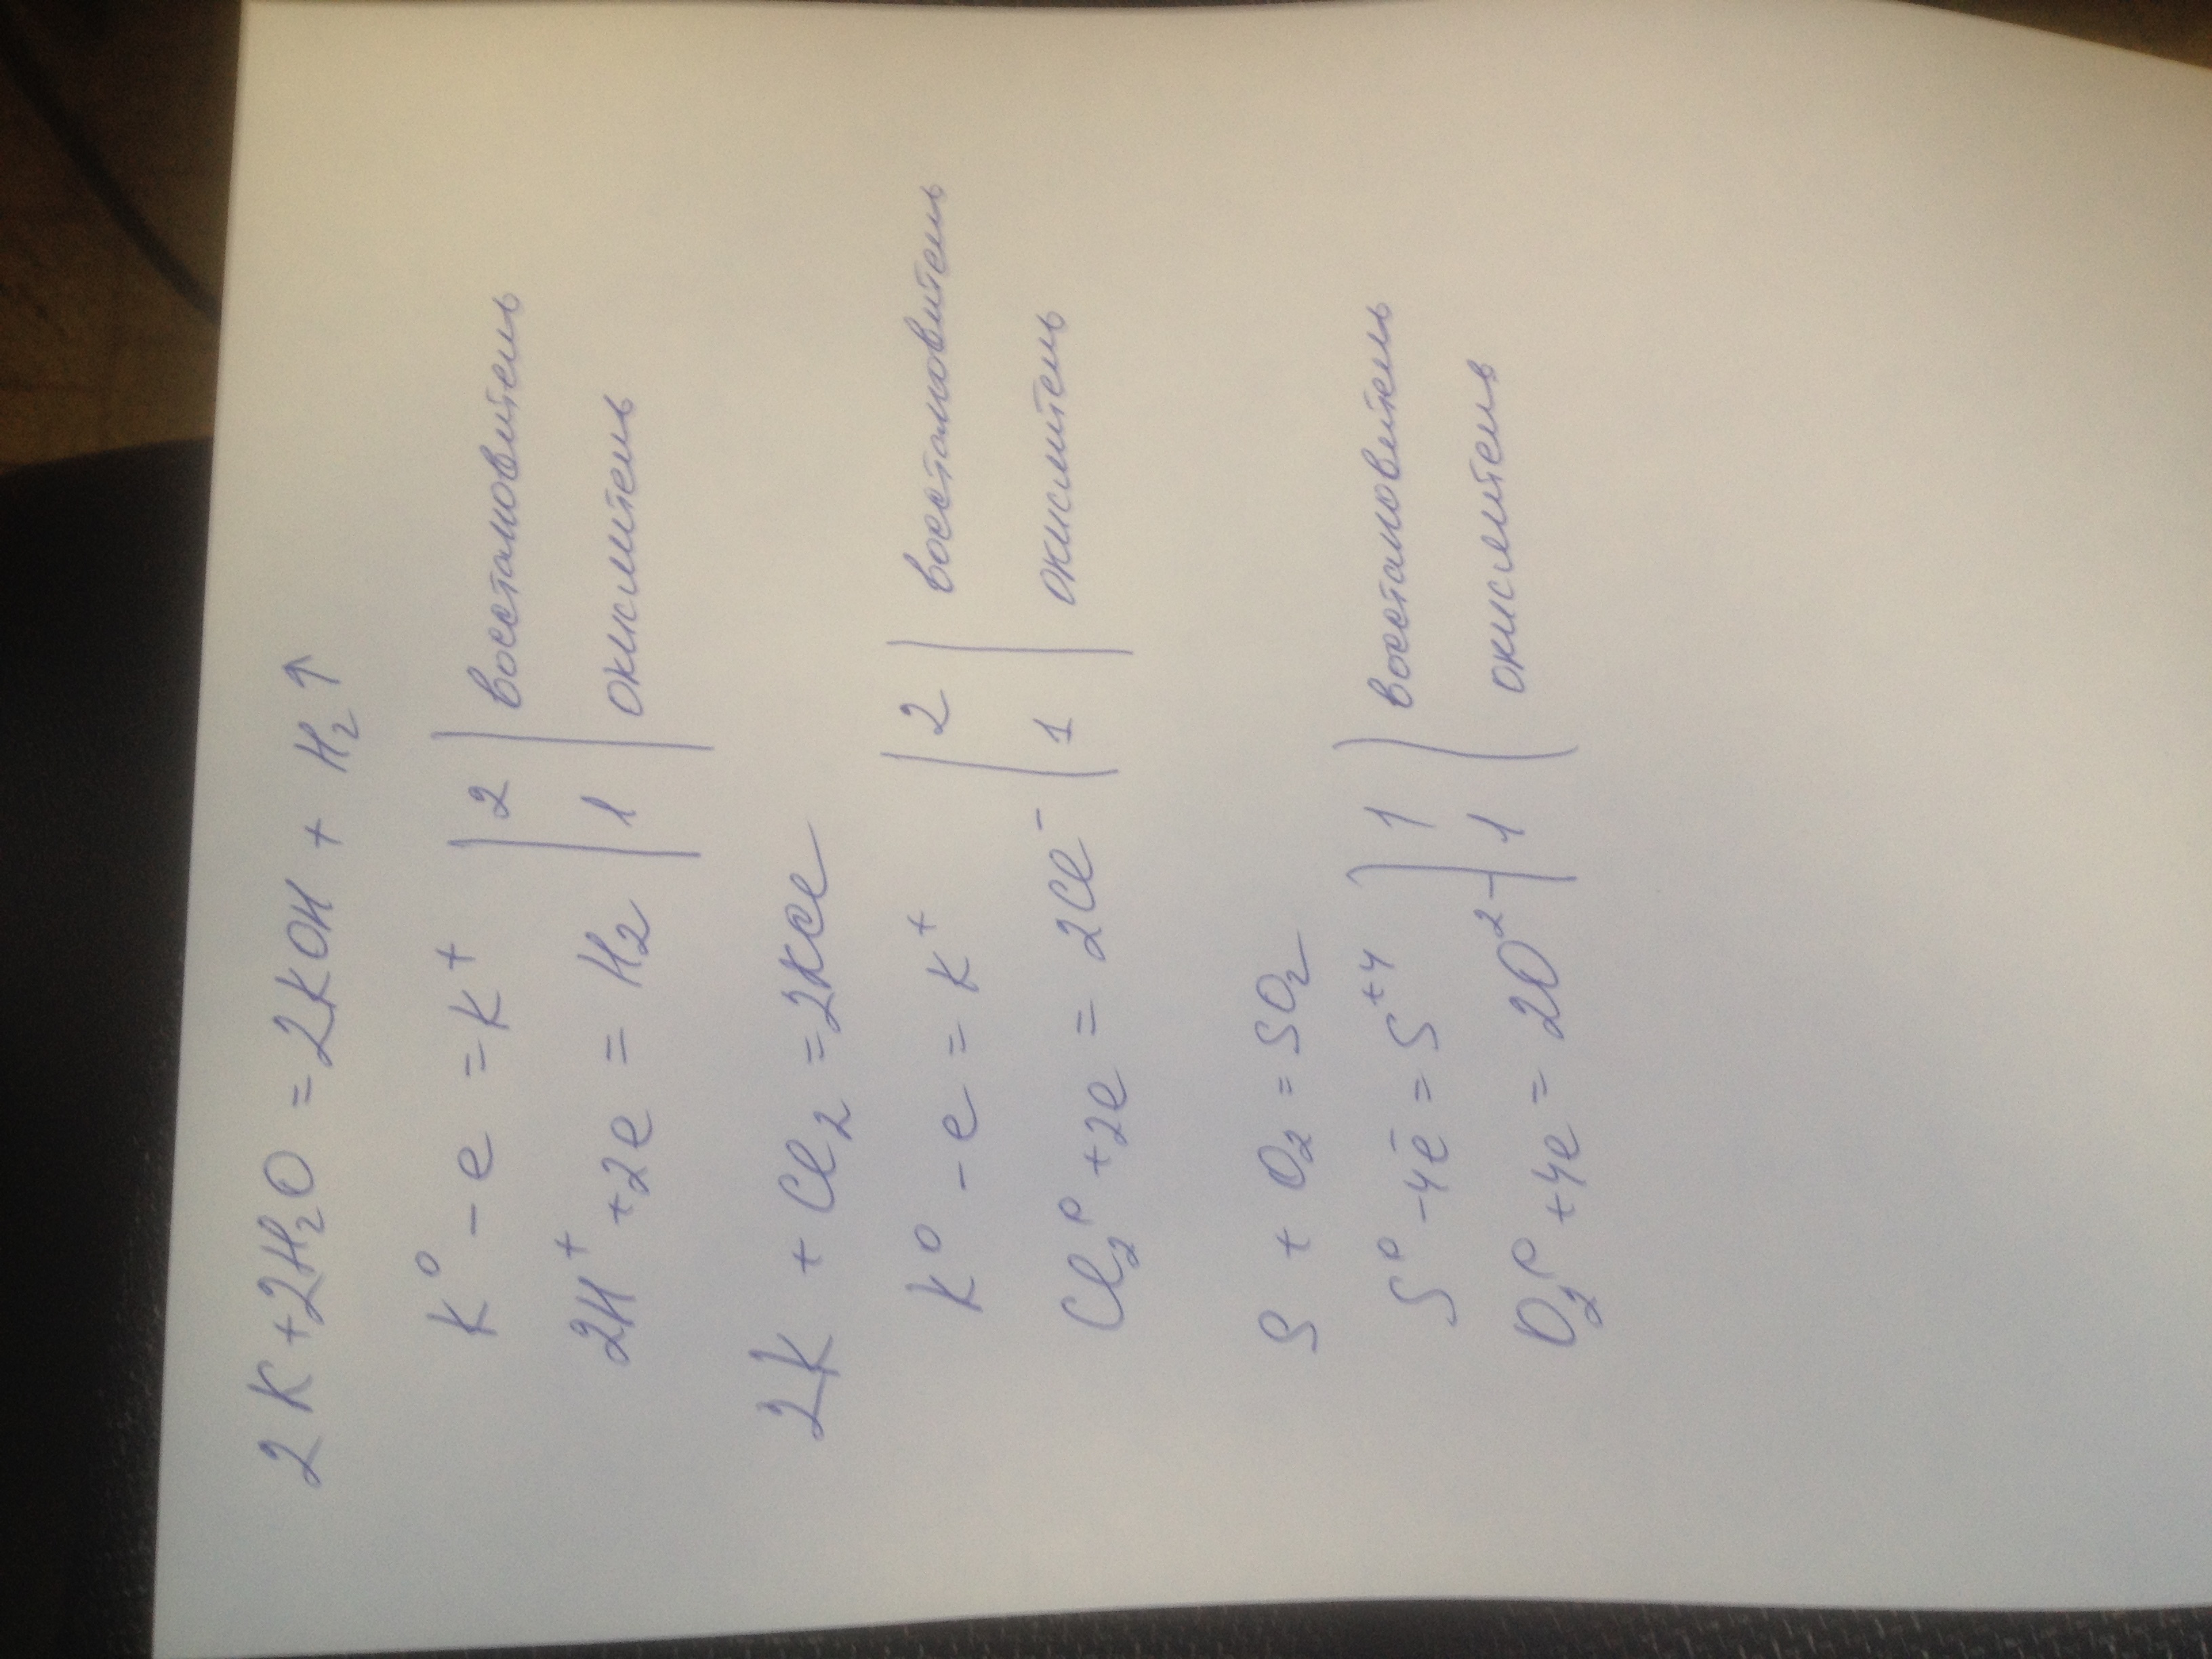 2K + 2H₂O = 2KOH + H₂↑
K⁰ - e = K⁺ | 2 | восстановитель
2H⁺ + 2e = H₂ | 1 | окислитель
2K + Cl₂ = 2KCl
K⁰ - e = K⁺ | 2 | восстановитель
Cl₂⁰ + 2e = 2Cl⁻ | 1 | окислитель
S + O₂ = SO₂
S⁰ - 4e⁻ = S⁺⁴ | 1 | восстановитель
O₂⁰ + 4e = 2O²⁻ | 1 | окислитель